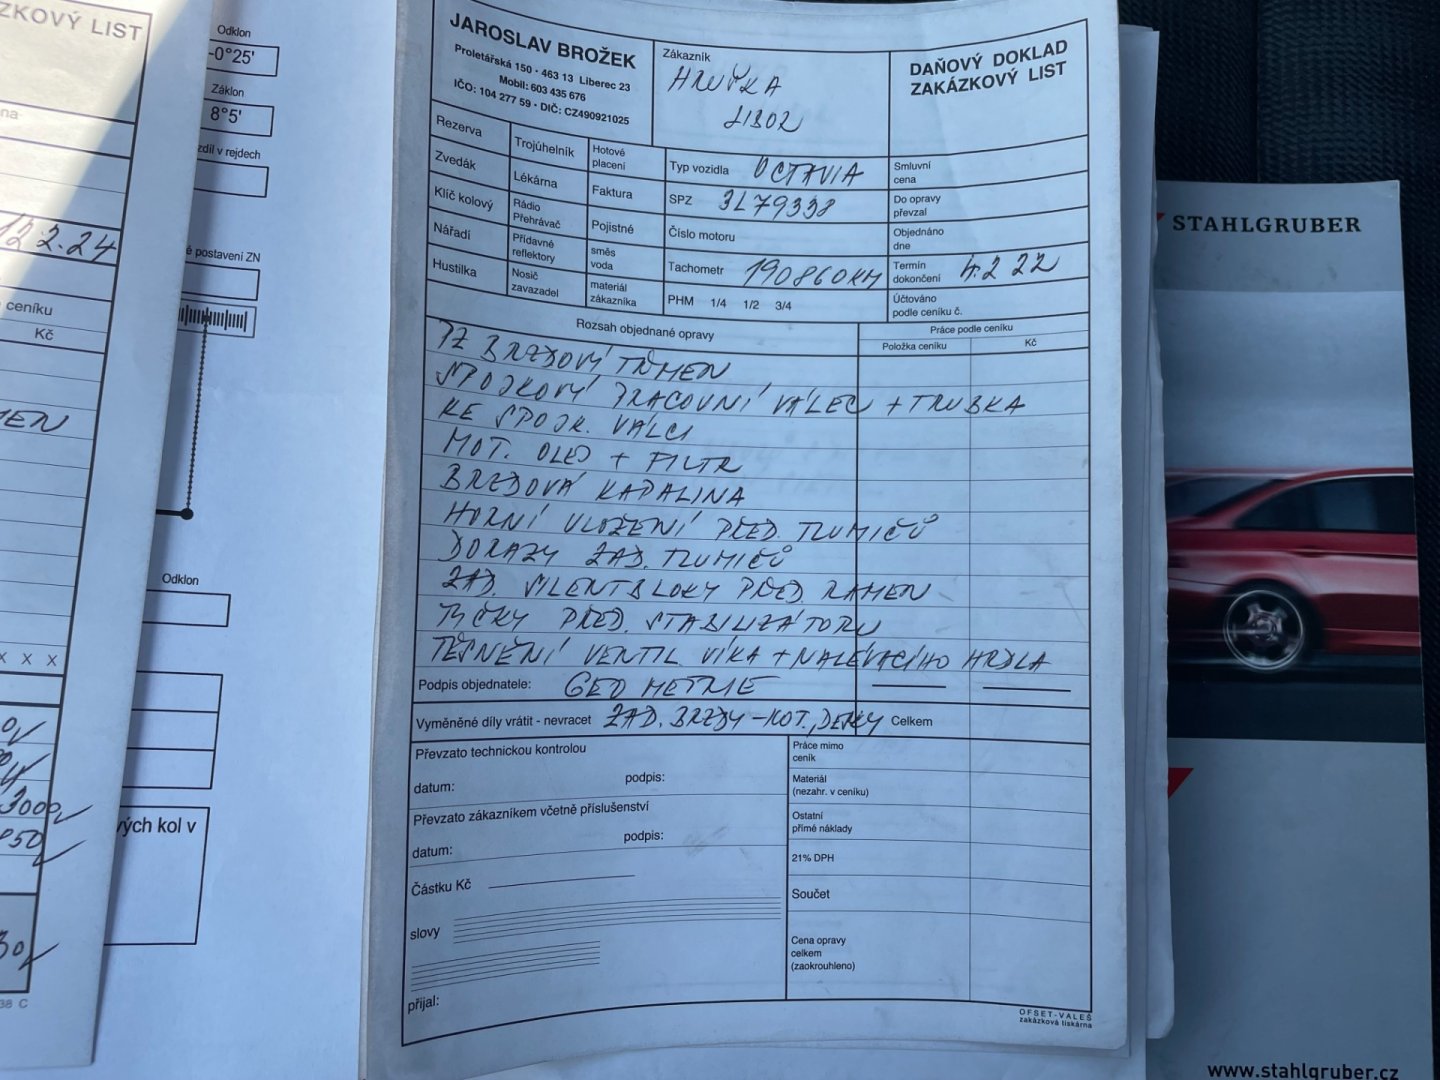 ZKOVÝ LIST
na
12.2.24
ceníku
Kč
MEN
x x x
3000
950
30
38 C
Odklon
-0°25'
Záklon
8°5'
zdíl v rejdech
é postavení ZN
Odklon
vých kol v
JAROSLAV BROŽEK
Proletářská 150 · 463 13 Liberec 23
Mobil: 603 435 676
IČO: 104 277 59 · DIČ: CZ490921025
Zákazník
HRUŠKA
LIBOR
DAŇOVÝ DOKLAD
ZAKÁZKOVÝ LIST
Rezerva
Zvedák
Klíč kolový
Nářadí
Hustilka
Trojúhelník
Lékárna
Rádio
Přehrávač
Přídavné
reflektory
Nosič
zavazadel
Hotové
placení
Faktura
Pojistné
směs
voda
materiál
zákazníka
Typ vozidla OCTAVIA
SPZ 3L79338
Číslo motoru
Tachometr 190860KM
PHM 1/4 1/2 3/4
Smluvní
cena
Do opravy
převzal
Objednáno
dne
Termín
dokončení 4.2 22
Účtováno
podle ceníku č.
Rozsah objednané opravy
Práce podle ceníku
Položka ceníku
Kč
PZ BRZDOVÝ TŘMEN
SPOJKOVÝ PRACOVNÍ VÁLEC + TRUBKA
KE SPOJK. VÁLCI
MOT. OLEJ + FILTR
BRZDOVÁ KAPALINA
HORNÍ ULOŽENÍ PŘED. TLUMIČŮ
DORAZY ZAD. TLUMIČŮ
ZAD. SILENTBLOKY PŘED. RAMEN
TYČKY PŘED. STABILIZÁTORU
TĚSNĚNÍ VENTIL. VÍKA + NALÉVACÍHO HRDLA
Podpis objednatele: GEOMETRIE
Vyměněné díly vrátit - nevracet ZAD. BRZDY - KOT., DESKY Celkem
Převzato technickou kontrolou
datum: podpis:
Převzato zákazníkem včetně příslušenství
podpis:
datum:
Částku Kč
slovy
přijal:
Práce mimo
ceník
Materiál
(nezahr. v ceníku)
Ostatní
přímé náklady
21% DPH
Součet
Cena opravy
celkem
(zaokrouhleno)
OFSET-VALEŠ
zakázková tiskárna
STAHLGRUBER
www.stahlgruber.cz